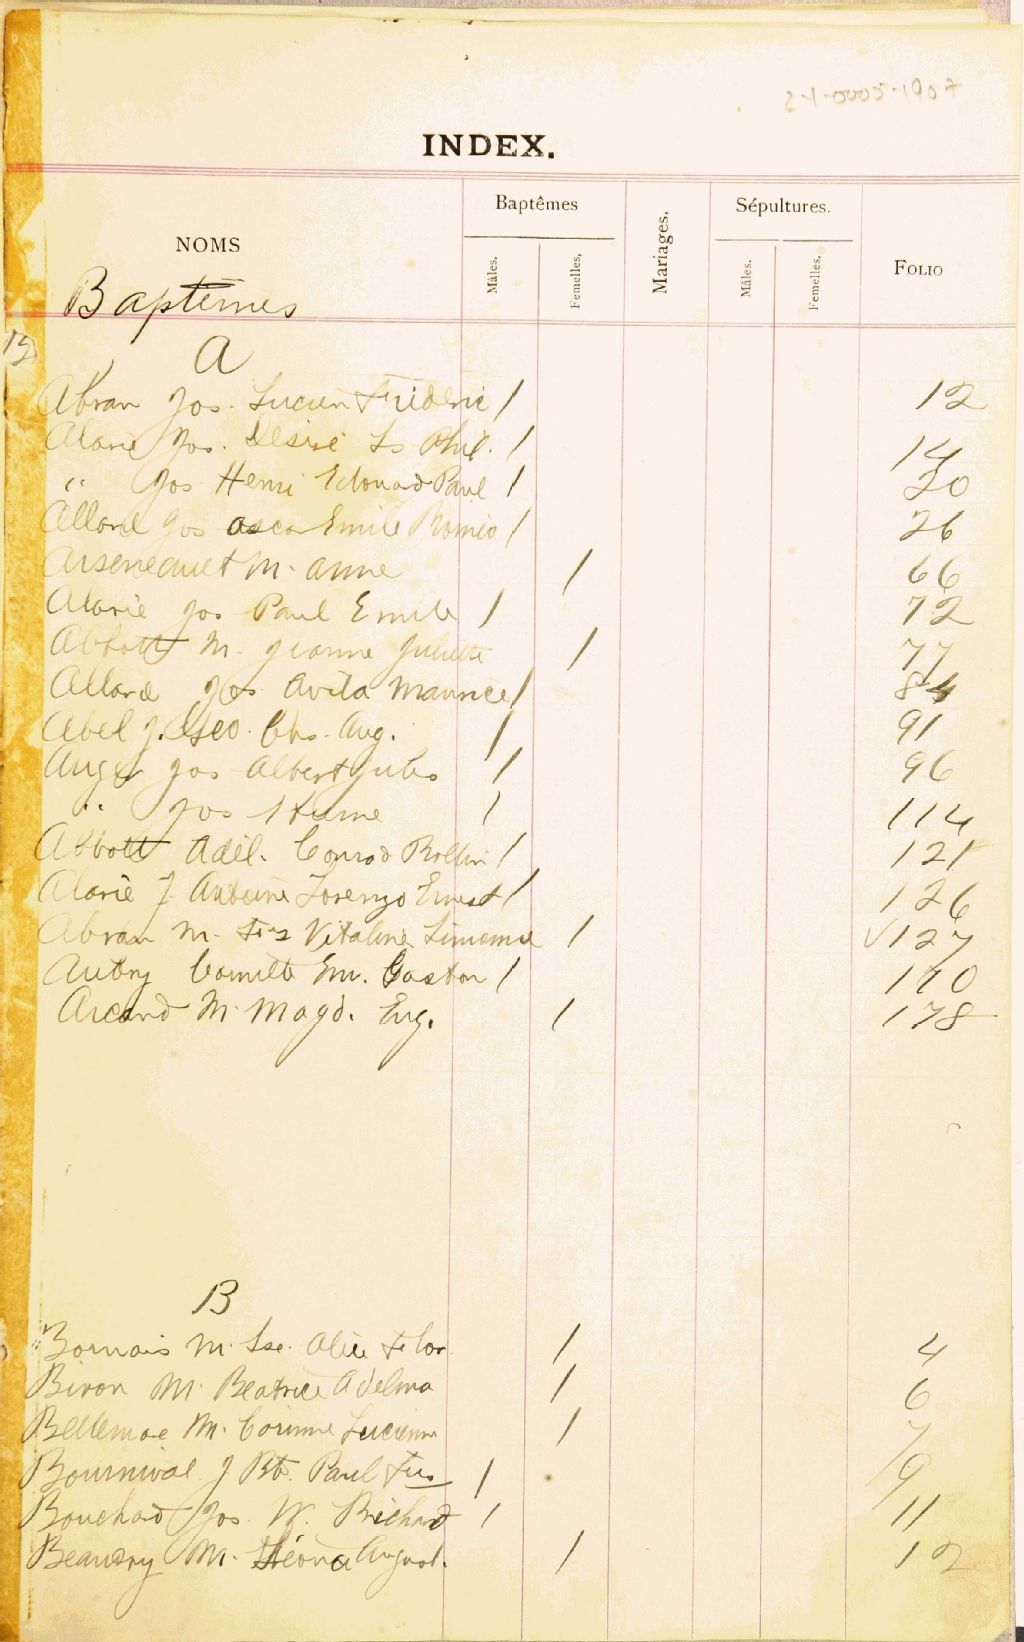 INDEX.
NOMS
Baptêmes
Mâles.
Femelles,
Mariages.
Sépultures.
Mâles.
Femelles.
FOLIO
Baptêmes
A
Abran Jos. Lucien Frideric / 12
Alarie Jos. Désiré Ls Phil. / 14
" Jos Henri Edouard Paul / 20
Allard Jos oscar Emile Roméo / 26
Arseneault M. anne / 66
Alarie Jos Paul Emile / 72
Abbott M. Jeanne Juliette / 77
Allard Jos Avila Maurice / 84
Abel J. Geo. Chs. Aug. / 91
Auger Jos Albert Jules / 96
" Jos / 114
Abbott Adél. Conrad Rollin / 121
Alarie J. Antoine Lorenzo Ernest / 126
Abran M. Frs Vitaline / 127
Autry Camille Em. Gaston / 170
Arcand M. Magd. Eug. / 178
B
Bornais M. Lse. Alice Flor / 4
Biron M. Beatrice Adelma / 6
Bellemare M. Corinne Lucienne / 7
Bournival J Bte. Paul Frs / 9
Bouchard Jos W. Richard / 11
Beaudry M. Léona August. / 12